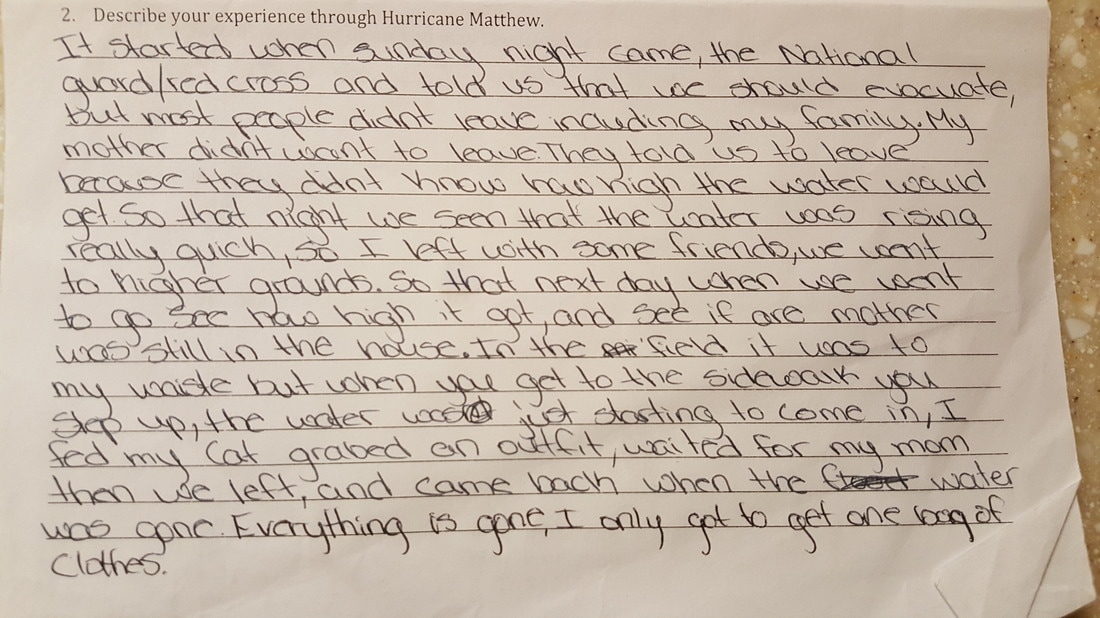 2. Describe your experience through Hurricane Matthew.
It started when sunday night came, the National
guard/red cross and told us that we should evacuate,
but most people didnt leave including my family. My
mother didnt want to leave. They told us to leave
because they didnt know how high the water would
get. So that night we seen that the water was rising
really quick, so I left with some friends, we went
to higher grounds. So that next day when we went
to go see how high it got, and see if are mother
was still in the house. In the field it was to
my waiste but when you get to the sidewalk you
step up, the water was just starting to come in, I
fed my cat grabed an outfit, waited for my mom
then we left, and came back when the water
was gone. Everything is gone, I only got to get one bag of
Clothes.